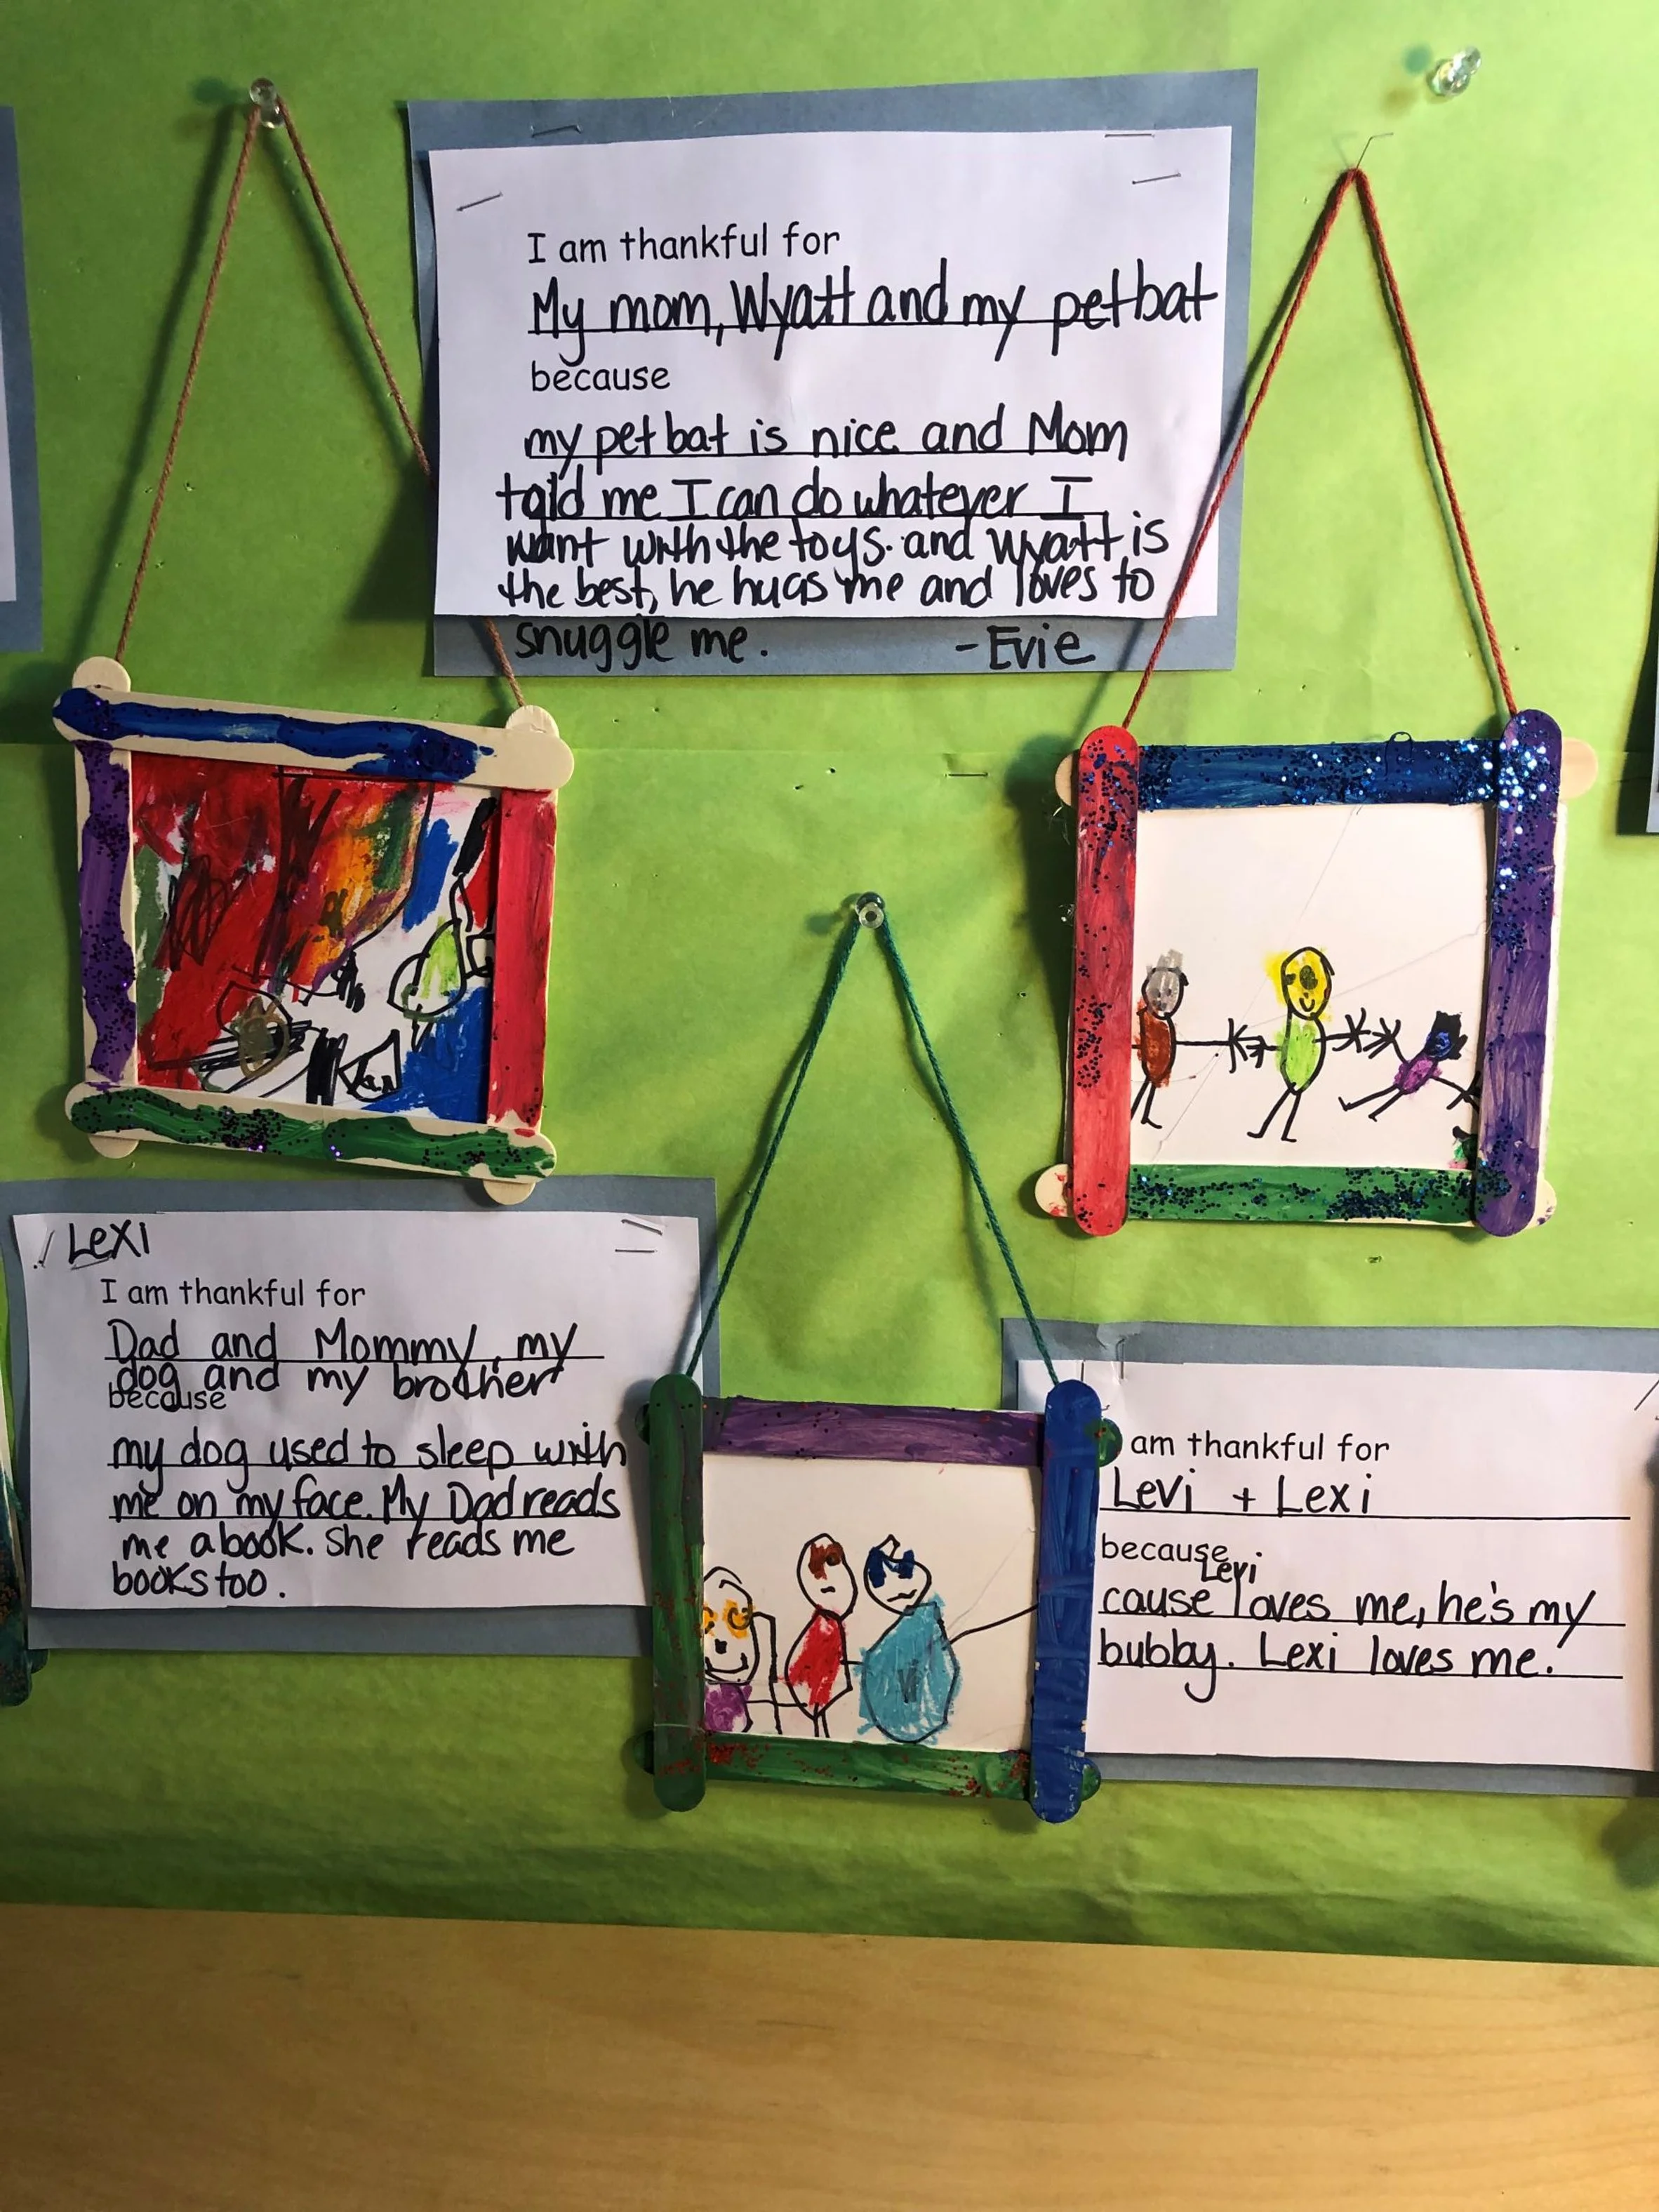 I am thankful for
My mom, Wyatt and my pet bat
because
my pet bat is nice and Mom
told me I can do whatever I
want with the toys. and Wyatt is
the best, he hugs me and loves to
snuggle me. -Evie
LEXI
I am thankful for
Dad and Mommy, my
dog and my brother
because
my dog used to sleep with
me on my face. My Dad reads
me a book. She reads me
books too.
am thankful for
Levi + Lexi
because
Levi
cause loves me, he's my
bubby. Lexi loves me.